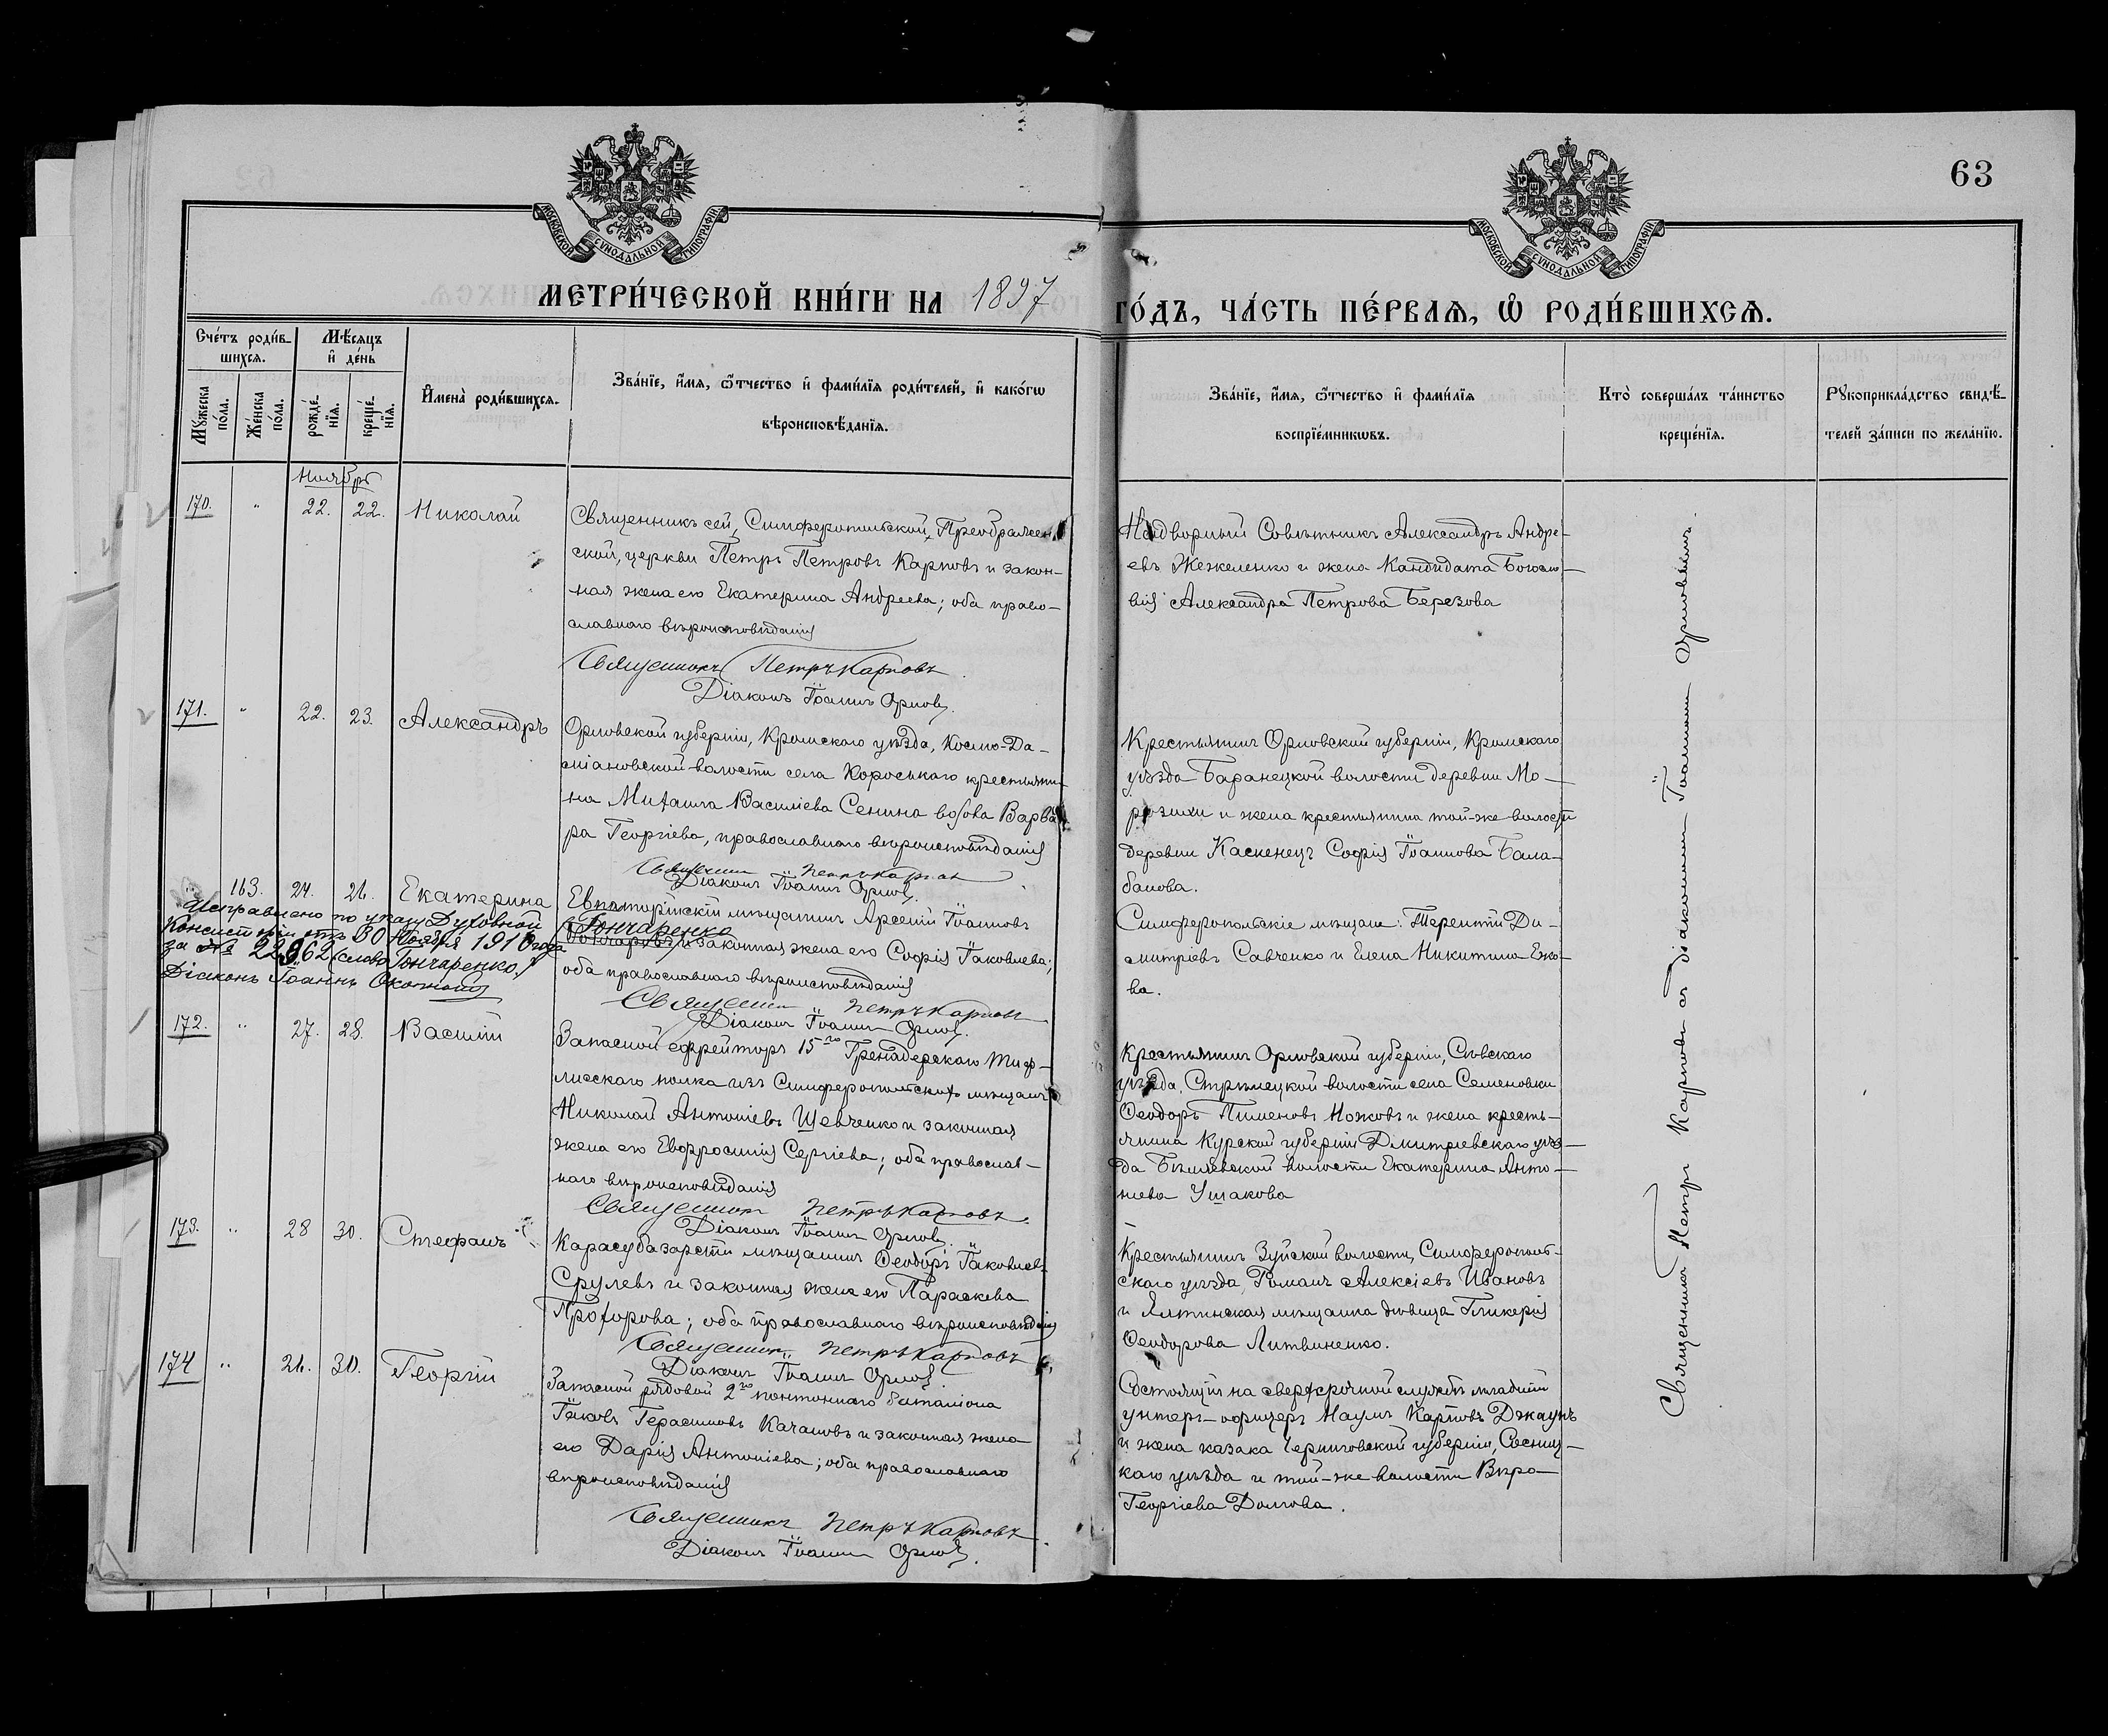 63
МОСКОВСКОЙ СѴНОДАЛЬНОЙ ТИПОГРАФІИ
МОСКОВСКОЙ СѴНОДАЛЬНОЙ ТИПОГРАФІИ
МЕТРИ́ЧЕСКОЙ КНИ́ГИ НА 1897 ГО́ДЪ, ЧА́СТЬ ПЕ́РВАѦ, Ѡ҆ РОДИ́ВШИХСѦ.
Сче́тъ роди́в-
шихсѧ.
Мꙋ́жеска по́ла.
Же́нска по́ла.
Мѣ́сяцъ
и҆ де́нь
рожде́-
нїѧ.
креще́-
нїѧ.
И҆мена̀ роди́вшихсѧ.
Зва́нїе, и҆́мѧ, ѻ҆́тчество и҆ фами́лїѧ роди́телей, и҆ како́гѡ
вѣроисповѣ́данїѧ.
Зва́нїе, и҆́мѧ, ѻ҆́тчество и҆ фами́лїѧ
воспрїе́мникѡвъ.
Кто̀ соверша́лъ та́инство
креще́нїѧ.
Рꙋкоприкла́дство свидѣ́-
телей за́писи по жела́нїю.
Ноябрь
170. " 22. 22. Николай
Священникъ сей, Симферопольской, Преображен-
ской, церкви Петръ Петровъ Карповъ и закон-
ная жена его Екатерина Андреева; оба право-
славнаго вѣроисповѣданія
Священникъ Петръ Карповъ
Діаконъ Іоаннъ Орловъ.
Надворный Совѣтникъ Александръ Андре-
евъ Жежеленко и жена Кандидата Богосло-
вія Александра Петрова Березова
171. " 22. 23. Александръ
Орловской губерніи, Кромскаго уѣзда, Космо-Да-
міановской волости села Короськаго крестьяни-
на Михаила Василіева Сенина вдова Варва-
ра Георгіева, православнаго вѣроисповѣданія
Священникъ Петръ Карповъ
Діаконъ Іоаннъ Орловъ.
Крестьянинъ Орловской губерніи, Кромскаго
уѣзда Баранецкой волости деревни Мо-
розихи и жена крестьянина той-же волости
деревни Каскенецъ Софія Іоаннова Бала-
банова.
" 163. 24. 26. Екатерина
Евпаторійскій мѣщанинъ Арсеній Іоанновъ
Гончаренко
Гончаровъ и законная жена его Софія Іаковлева;
оба православнаго вѣроисповѣданія
Священникъ Петръ Карповъ
Діаконъ Іоаннъ Орловъ.
Исправлено по указу Духовной
Консисторіи отъ 30 Ноября 1916 года
за № 22962 (слово Гончаренко.)
Діаконъ Іоаннъ
Симферопольскіе мѣщане: Терентій Ди-
митріевъ Савченко и Елена Никитина Ежо-
ва.
172. " 27. 28. Василій
Запасной ефрейторъ 15го Гренадерскаго Тиф-
лисскаго полка изъ Симферопольскихъ мѣщанъ
Николай Антоніевъ Шевченко и законная
жена его Евфросинія Сергіева; оба православ-
наго вѣроисповѣданія
Священникъ Петръ Карповъ.
Діаконъ Іоаннъ Орловъ.
Крестьянинъ Орловской губерніи, Сѣвскаго
уѣзда, Стрѣлецкой волости села Семеновки
Ѳеодоръ Пименовъ Ножовъ и жена кресть-
янина Курской губерніи Дмитріевскаго уѣз-
да Бѣляевской волости Екатерина Анто-
ніева Ушакова
173. " 28 30. Стефанъ
Карасубазарскій мѣщанинъ Ѳеодоръ Іаковлевъ
Срулевъ и законная жена его Параскева
Прохорова; оба православнаго вѣроисповѣданія
Священникъ Петръ Карповъ
Діаконъ Іоаннъ Орловъ
Крестьянинъ Зуйской волости, Симферополь-
скаго уѣзда, Романъ Алексіевъ Ивановъ
и Ялтинская мѣщанка дѣвица Гликерія
Ѳеодорова Литвиненко.
174 " 26. 30. Георгій
Запасной рядовой 2го понтоннаго баталіона
Іаковъ Герасимовъ Качановъ и законная жена
его Дарія Антоніева; оба православнаго
вѣроисповѣданія
Священникъ Петръ Карповъ
Діаконъ Іоаннъ Орловъ.
Состоящій на сверхсрочной службѣ младшій
унтеръ-офицеръ Наумъ Карповъ Джаунъ
и жена казака Черниговской губерніи, Сосниц-
каго уѣзда и той-же волости Вѣра
Георгіева Долгова.
Священникъ Петръ Карповъ съ діакономъ Іоанномъ Орловымъ.